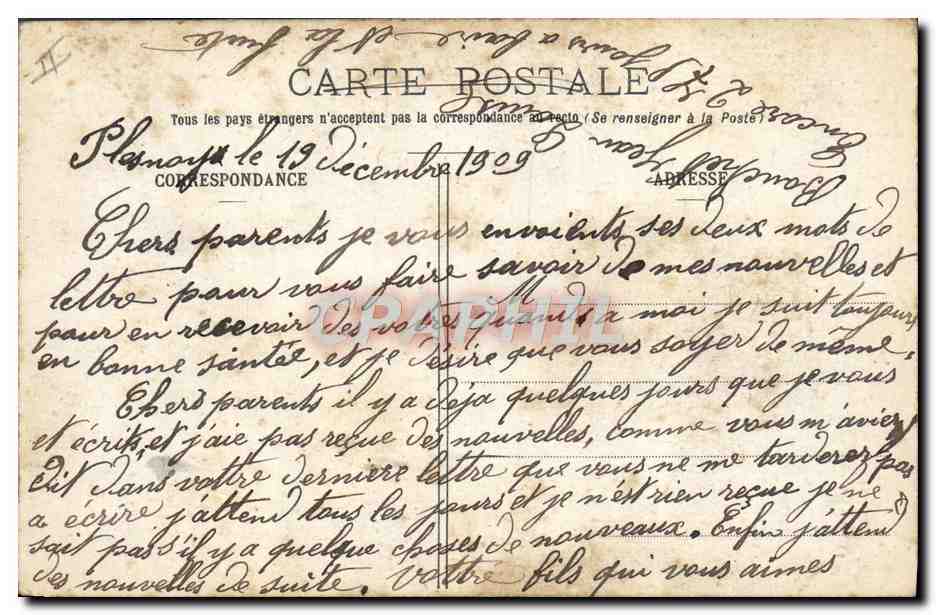 CARTE POSTALE
Tous les pays étrangers n'acceptent pas la correspondance au recto (Se renseigner à la Poste)
le 19 décembre 1909
CORRESPONDANCE
ADRESSE
Chers parents je vous envoients ses deux mots de
lettre pour vous faire savoir de mes nouvelles et
pour en recevoir des votres quand a moi je suit toujours
en bonne santée, et je désire que vous soyer de même.
Chers parents il y a déja quelques jours que je vous
et écrits, et j'aie pas reçue des nouvelles, comme vous m'aviez
dit dans vottre derniere lettre que vous ne me tarderez pas
a écrire j'attend tous les jours et je n'est rien reçue je ne
sait pas s'il y a quelque choses de nouveaux. Enfin j'attend
des nouvelles de suite. Vottre fils qui vous aimes
Jean
Encore 275
jours a faire et la fuite
CPAPHIL